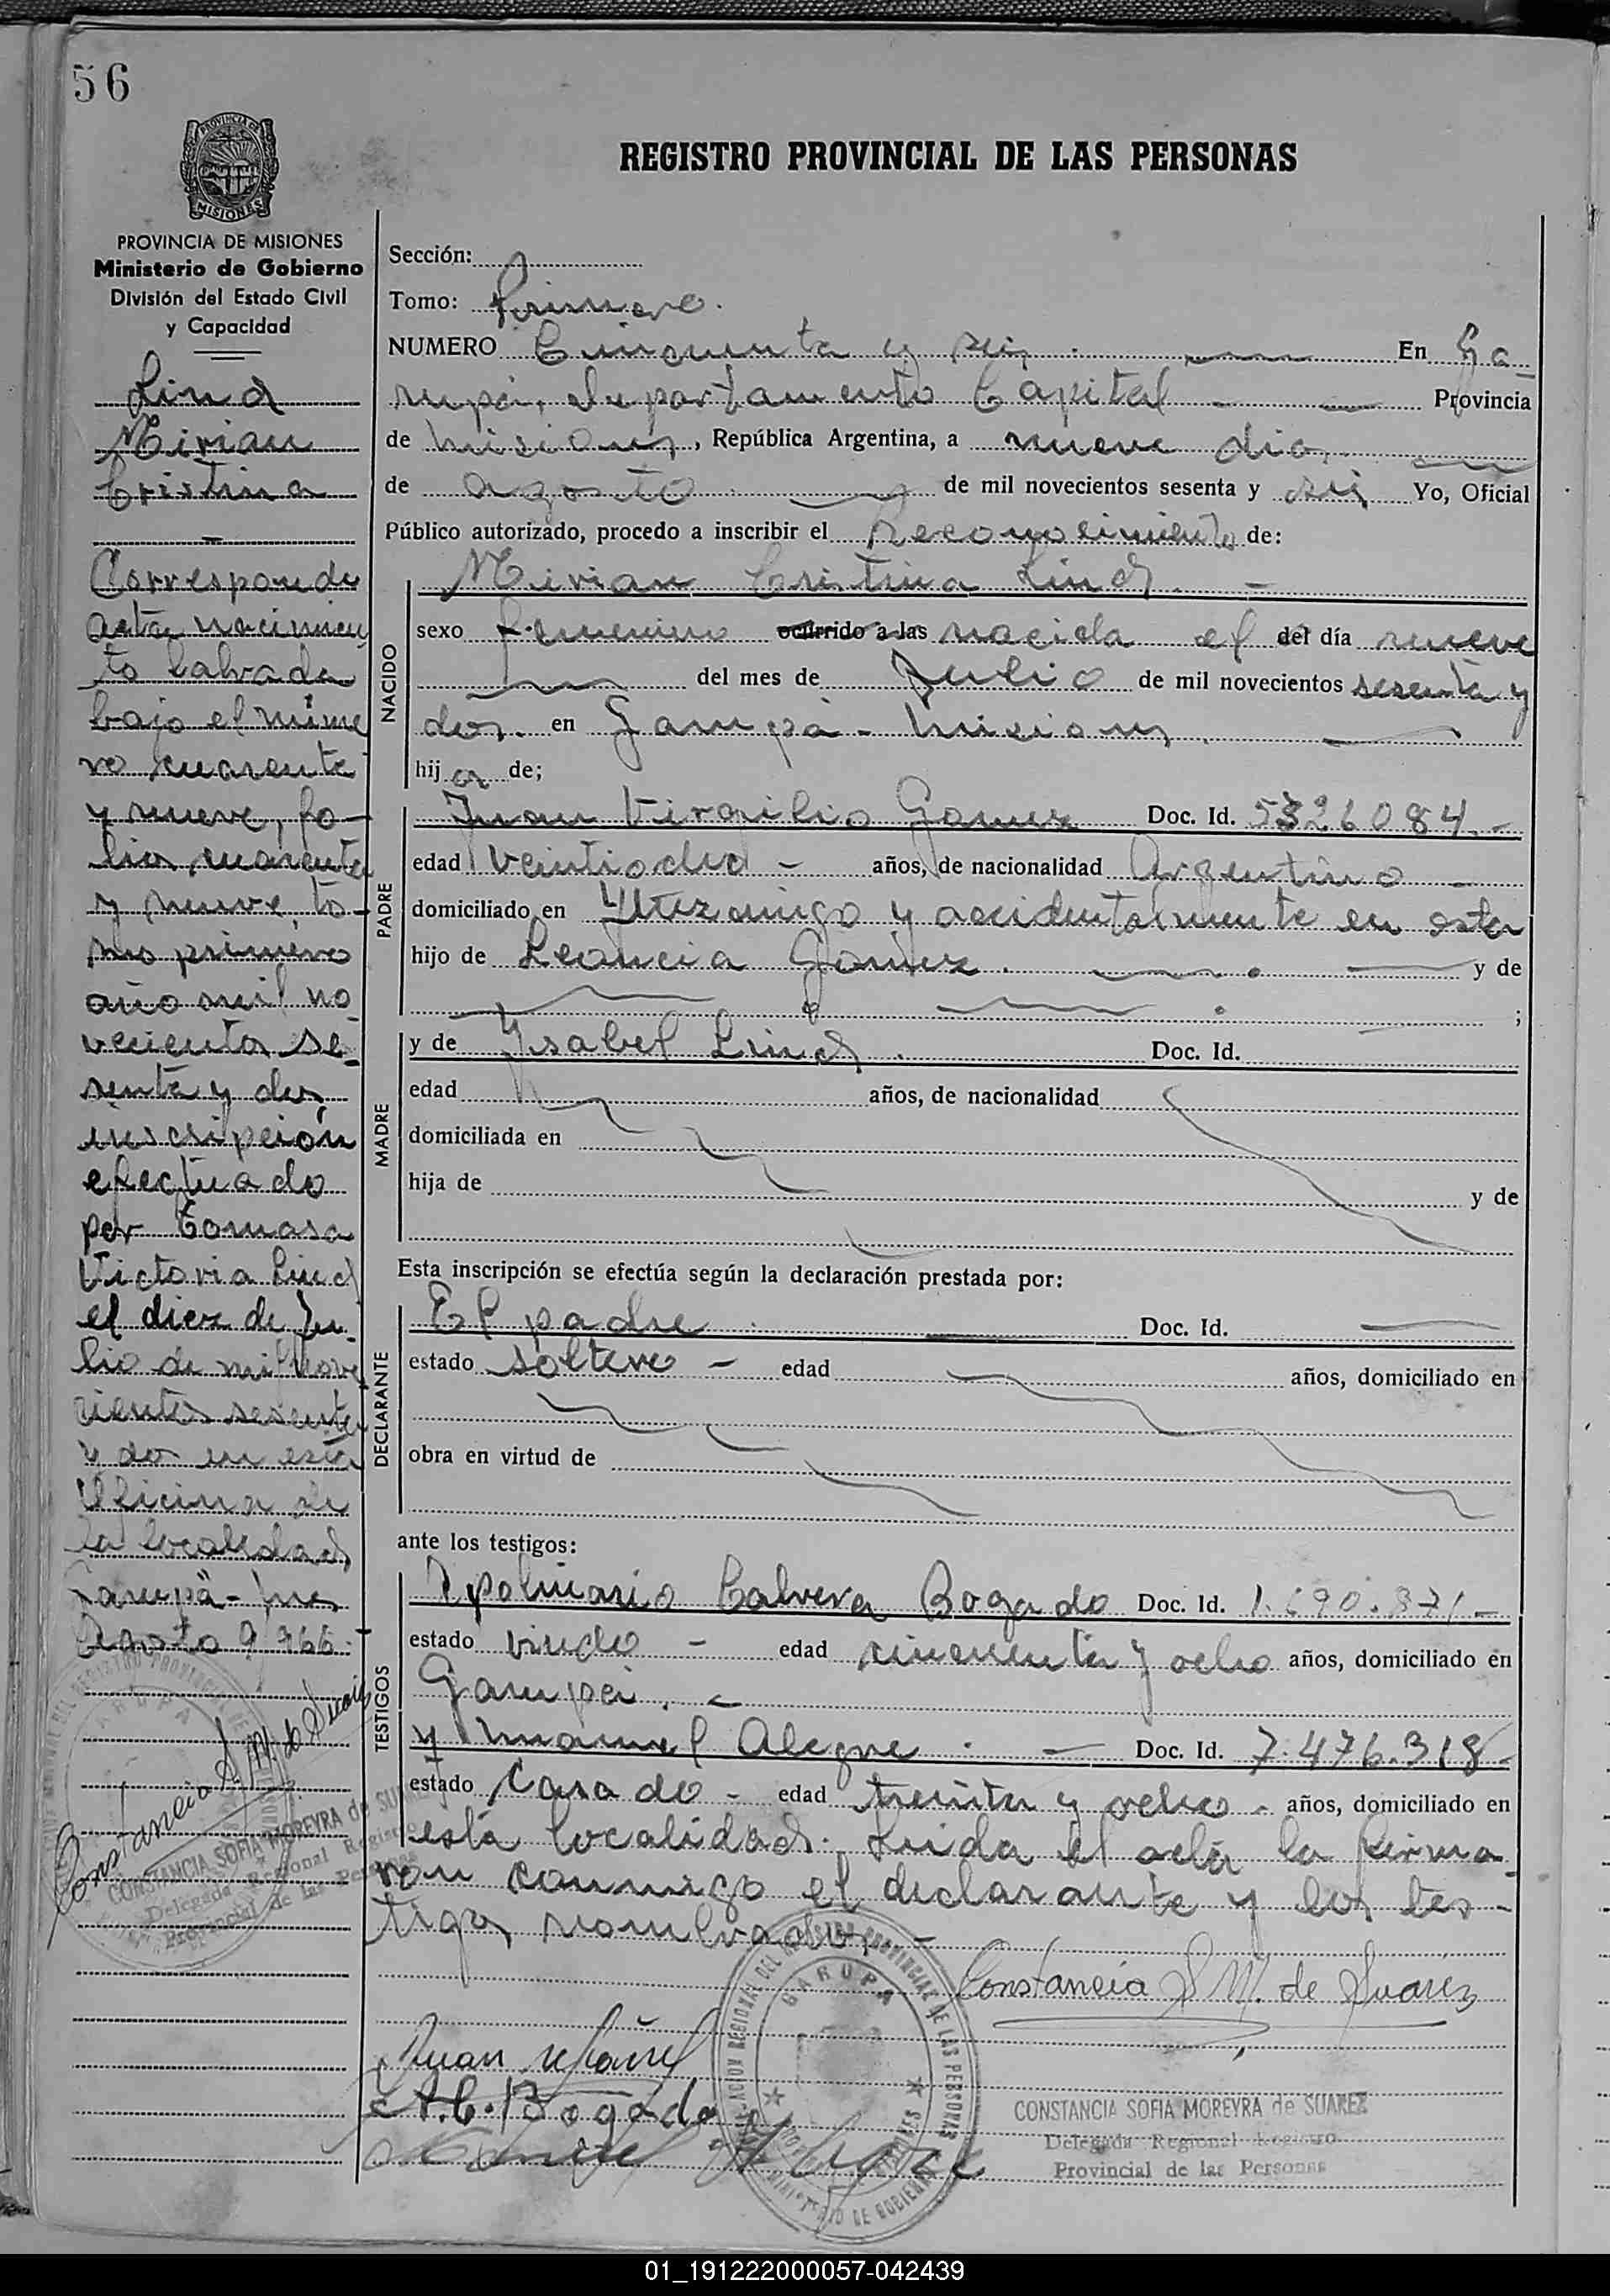 56
PROVINCIA DE
MISIONES
PROVINCIA DE MISIONES
Ministerio de Gobierno
División del Estado Civil
y Capacidad
Lind
Mirian
Cristina
Corresponde
acta nacimien
to labrada
bajo el nume
ro cuarenta
y nueve, fo-
lio cuarenta
y nueve, to-
mo primero
año mil no
vecientos se-
senta y dos,
inscripción
efectuado
por Tomasa
Victoria Lind
el diez de Ju-
lio de mil nove
cientos sesenta
y dos en esta
Oficina de
la localidad
Garupá - Mnes
Agosto 9 966.
Constancia S. M. de Suarez
CONSTANCIA SOFIA MOREYRA de SUAREZ
Delegada Regional Registro
Provincial de las Personas
REGISTRO PROVINCIAL DE LAS PERSONAS
Sección:
Tomo: Primero.
NUMERO Cincuenta y seis. En Ga
rupá, departamento Capital Provincia
de Misiones, República Argentina, a nueve dias
de agosto de mil novecientos sesenta y seis Yo, Oficial
Público autorizado, procedo a inscribir el Reconocimiento de:
NACIDO
Mirian Cristina Lind. -
sexo femenino ocurrido a las nacida el del día nueve
del mes de Julio de mil novecientos sesenta y
dos. en Garupá - Misiones.
hija de;
PADRE
Juan Virgilio Gomez Doc. Id. 5326084.-
edad veintiocho - años, de nacionalidad Argentino -
domiciliado en Ytuzaingo y accidentalmente en esta
hijo de Leoncia Gomez. y de
;
MADRE
y de Ysabel Lind. Doc. Id.
edad años, de nacionalidad
domiciliada en
hija de y de
Esta inscripción se efectúa según la declaración prestada por:
DECLARANTE
El padre. Doc. Id.
estado soltero - edad años, domiciliado en
obra en virtud de
ante los testigos:
TESTIGOS
Apolinario Cabrera Bogado Doc. Id. 1.690.871-
estado viudo - edad cincuenta y ocho años, domiciliado en
Garupá. -
y Manuel Alegre. - Doc. Id. 7.476.318-
estado Casado - edad treinta y ocho - años, domiciliado en
esta localidad. Leida el acta la firma-
ron conmigo el declarante y los tes-
tigos nombrados. -
Constancia S M. de Suárez
GARUPA
Juan
A.C. Bogado
CONSTANCIA SOFIA MOREYRA de SUAREZ
Delegada Regional Registro
Provincial de las Personas
01_191222000057-042439